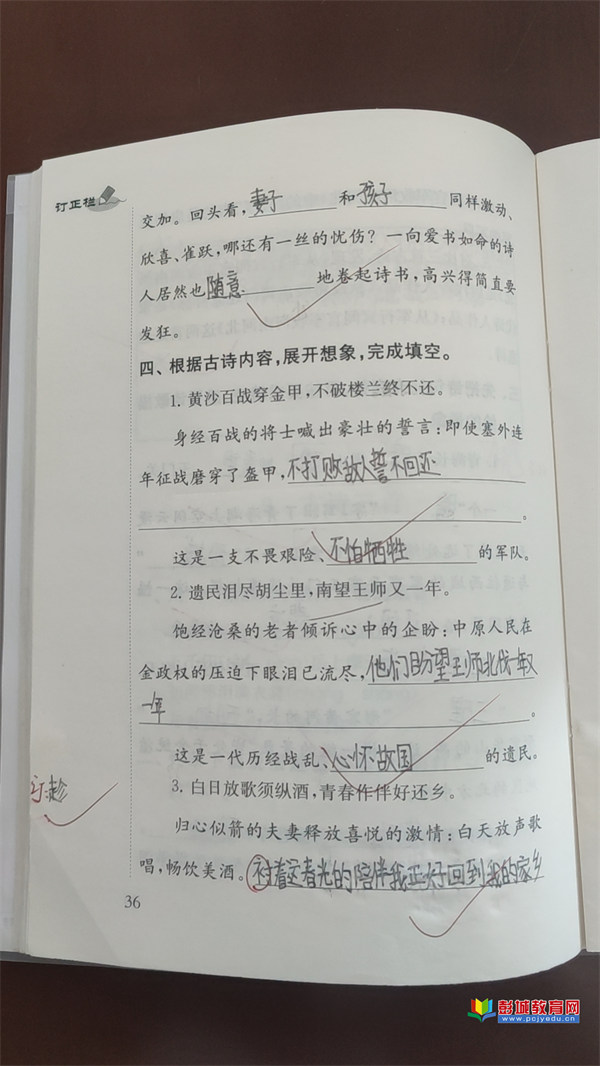 订正栏
交加。回头看，妻子和孩子同样激动、
欣喜、雀跃，哪还有一丝的忧伤？一向爱书如命的诗
人居然也随意地卷起诗书，高兴得简直要
发狂。
四、根据古诗内容，展开想象，完成填空。
1. 黄沙百战穿金甲，不破楼兰终不还。
身经百战的将士喊出豪壮的誓言：即使塞外连
年征战磨穿了盔甲，不打败敌人誓不回还
。
这是一支不畏艰险、不怕牺牲的军队。
2. 遗民泪尽胡尘里，南望王师又一年。
饱经沧桑的老者倾诉心中的企盼：中原人民在
金政权的压迫下眼泪已流尽，他们盼望王师北伐一年又
一年。
这是一代历经战乱、心怀故国的遗民。
订：趁
3. 白日放歌须纵酒，青春作伴好还乡。
归心似箭的夫妻释放喜悦的激情：白天放声歌
唱，畅饮美酒。衬着这春光的陪伴我正好回到我的家乡
36
彭城教育网
www.pcjyedu.cn